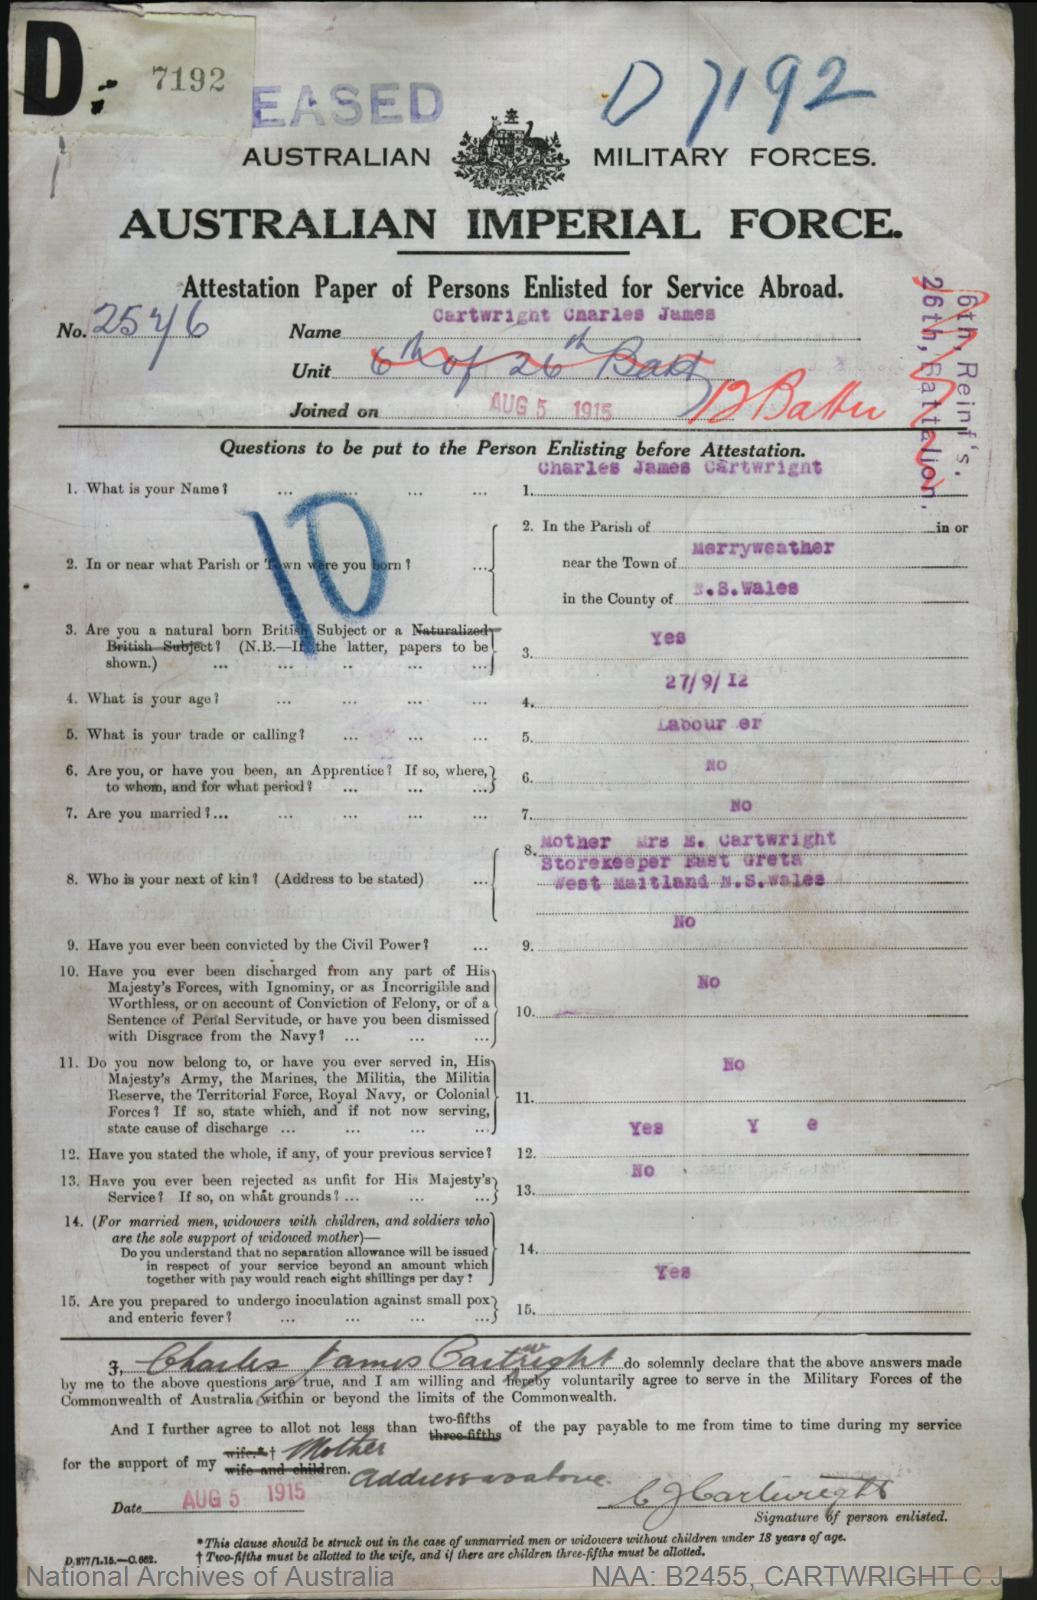 D. 7192
EASED
D 7192
AUSTRALIAN MILITARY FORCES.
AUSTRALIAN IMPERIAL FORCE.
Attestation Paper of Persons Enlisted for Service Abroad.
No. 2546 Name Cartwright Charles James
Unit 6th of 26th Batt
6th, Reinf's,
26th, Battalion,
Joined on AUG 5 1915
Questions to be put to the Person Enlisting before Attestation.
1. What is your Name? ... ... ... ... 1. Charles James Cartwright
10
2. In or near what Parish or Town were you born? ... 2. In the Parish of in or
near the Town of Merryweather
in the County of N.S.Wales
3. Are you a natural born British Subject or a Naturalized
British Subject? (N.B.—If the latter, papers to be
shown.) ... ... .. ... ... 3. Yes
4. What is your age? ... ... ... ... 4. 27/9/12
5. What is your trade or calling? ... ... ... 5. Labour er
6. Are you, or have you been, an Apprentice? If so, where,
to whom, and for what period? ... ... ... 6. No
7. Are you married?... ... ... ... ... 7. No
8. Who is your next of kin? (Address to be stated) ... 8. Mother Mrs E. Cartwright
Storekeeper East Greta
West Maitland N.S.Wales
9. Have you ever been convicted by the Civil Power? ... 9. No
10. Have you ever been discharged from any part of His
Majesty's Forces, with Ignominy, or as Incorrigible and
Worthless, or on account of Conviction of Felony, or of a
Sentence of Penal Servitude, or have you been dismissed
with Disgrace from the Navy? ... ... ... 10. No
11. Do you now belong to, or have you ever served in, His
Majesty's Army, the Marines, the Militia, the Militia
Reserve, the Territorial Force, Royal Navy, or Colonial
Forces? If so, state which, and if not now serving,
state cause of discharge ... ... ... ... 11. No
12. Have you stated the whole, if any, of your previous service? 12. Yes Y e
13. Have you ever been rejected as unfit for His Majesty's
Service? If so, on what grounds? ... ... ... 13. No
14. (For married men, widowers with children, and soldiers who
are the sole support of widowed mother)—
Do you understand that no separation allowance will be issued
in respect of your service beyond an amount which
together with pay would reach eight shillings per day? 14.
15. Are you prepared to undergo inoculation against small pox
and enteric fever? ... ... ... ... 15. Yes
I, Charles James Cartwright do solemnly declare that the above answers made
by me to the above questions are true, and I am willing and hereby voluntarily agree to serve in the Military Forces of the
Commonwealth of Australia within or beyond the limits of the Commonwealth.
And I further agree to allot not less than two-fifths three-fifths of the pay payable to me from time to time during my service
for the support of my wife.*† wife and children. Mother
Address as above
Date AUG 5 1915 C J Cartwright
Signature of person enlisted.
*This clause should be struck out in the case of unmarried men or widowers without children under 18 years of age.
† Two-fifths must be allotted to the wife, and if there are children three-fifths must be allotted.
D.877/1.15.—C.662.
National Archives of Australia NAA: B2455, CARTWRIGHT C J